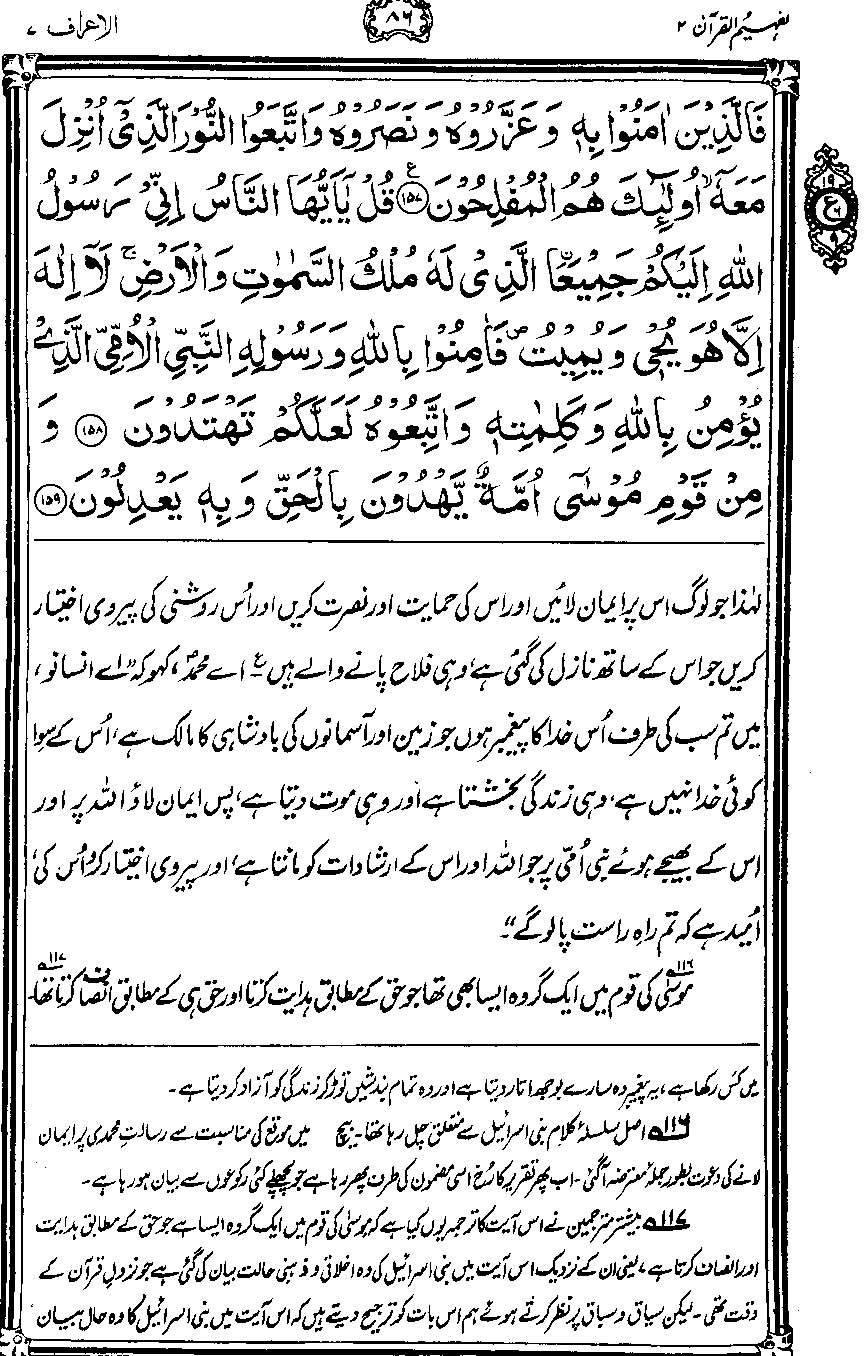 تفہیم القرآن ۲
۸۶
الاعراف ۷
فَالَّذِيْنَ اٰمَنُوْا بِهٖ وَعَزَّرُوْهُ وَنَصَرُوْهُ وَاتَّبَعُوا النُّوْرَ الَّذِيْٓ اُنْزِلَ
مَعَهٗٓ ۙ اُولٰٓئِكَ هُمُ الْمُفْلِحُوْنَ ﴿۱۵۷﴾ ع قُلْ يٰٓاَيُّهَا النَّاسُ اِنِّيْ رَسُوْلُ
اللّٰهِ اِلَيْكُمْ جَمِيْعَا ۨ الَّذِيْ لَهٗ مُلْكُ السَّمٰوٰتِ وَالْاَرْضِ ۚ لَآ اِلٰهَ
اِلَّا هُوَ يُحْيٖ وَيُمِيْتُ ۪ فَاٰمِنُوْا بِاللّٰهِ وَرَسُوْلِهِ النَّبِيِّ الْاُمِّيِّ الَّذِيْ
يُؤْمِنُ بِاللّٰهِ وَكَلِمٰتِهٖ وَاتَّبِعُوْهُ لَعَلَّكُمْ تَهْتَدُوْنَ ﴿۱۵۸﴾ وَ
مِنْ قَوْمِ مُوْسٰٓى اُمَّةٌ يَّهْدُوْنَ بِالْحَقِّ وَبِهٖ يَعْدِلُوْنَ ﴿۱۵۹﴾
۱۹
ع ۶
۹
لہٰذا جو لوگ اس پر ایمان لائیں اور اس کی حمایت اور نصرت کریں اور اُس روشنی کی پیروی اختیار
کریں جو اس کے ساتھ نازل کی گئی ہے، وہی فلاح پانے والے ہیں ع اے محمدؐ، کہو کہ ”اے انسانو،
میں تم سب کی طرف اُس خدا کا پیغمبر ہوں جو زمین اور آسمانوں کی بادشاہی کا مالک ہے، اُس کے سوا
کوئی خدا نہیں ہے، وہی زندگی بخشتا ہے اور وہی موت دیتا ہے، پس ایمان لاؤ اللہ پر اور
اس کے بھیجے ہوئے نبی اُمّی پر جو اللہ اور اس کے ارشادات کو مانتا ہے، اور پیروی اختیار کرو اُس کی،
اُمید ہے کہ تم راہِ راست پالو گے“۔
۱۱۶ موسیٰ کی قوم میں ایک گروہ ایسا بھی تھا جو حق کے مطابق ہدایت کرتا اور حق ہی کے مطابق انصاف کرتا تھا۔ ۱۱۷
میں کس رکھا ہے، یہ پیغمبر وہ سارے بوجھ اتار دیتا ہے اور وہ تمام بندشیں توڑ کر زندگی کو آزاد کر دیتا ہے۔
۱۱۶ اصل سلسلۂ کلام بنی اسرائیل سے متعلق چل رہا تھا۔ بیچ میں موقع کی مناسبت سے رسالتِ محمدی پر ایمان
لانے کی دعوت بطور جملۂ معترضہ آگئی۔ اب پھر تقریر کا رُخ اسی مضمون کی طرف پھر رہا ہے جو پچھلے کئی رکوعوں سے بیان ہو رہا ہے۔
۱۱۷ بیشتر مترجمین نے اس آیت کا ترجمہ یوں کیا ہے کہ موسیٰ کی قوم میں ایک گروہ ایسا ہے جو حق کے مطابق ہدایت
اور انصاف کرتا ہے، یعنی ان کے نزدیک اس آیت میں بنی اسرائیل کی وہ اخلاقی و ذہنی حالت بیان کی گئی ہے جو نزولِ قرآن کے
وقت تھی۔ لیکن سیاق و سباق پر نظر کرتے ہوئے ہم اس بات کو ترجیح دیتے ہیں کہ اس آیت میں بنی اسرائیل کا وہ حال بیان